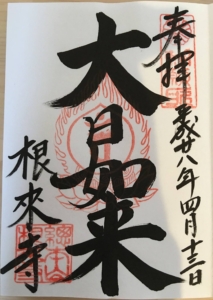 奉拝 平成廿八年四月十三日
大日如来
根来寺